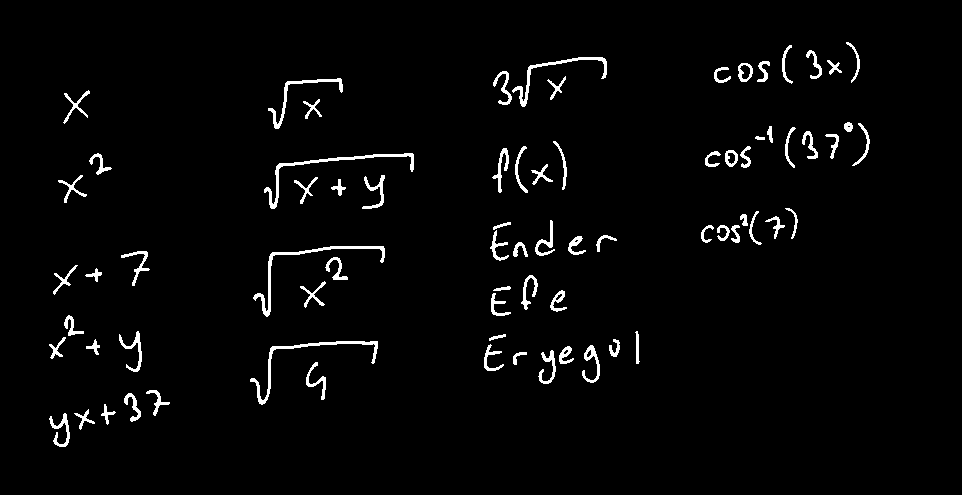 x
x²
x + 7
x² + y
yx + 37
√x
√(x + y)
√(x²)
√9
3√x
f(x)
Ender
Efe
Eryegul
cos(3x)
cos⁻¹(37°)
cos²(7)